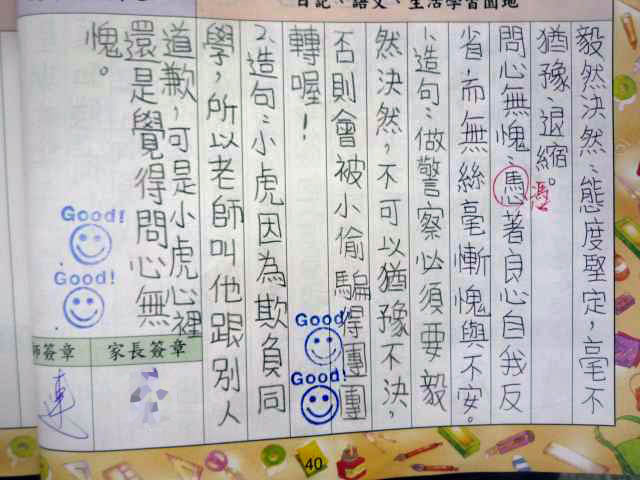 日記、語文、生活學習園地
毅然決然:態度堅定,毫不
猶豫、退縮。
問心無愧:馮著良心自我反
憑
省,而無絲毫慚愧與不安。
1、造句:做警察必須要毅
然決然,不可以猶豫不決,
否則會被小偷騙得團團
轉喔!
2、造句:小虎因為欺負同
學,所以老師叫他跟別人
道歉,可是小虎心裡
還是覺得問心無
愧。
Good!
Good!
Good!
Good!
家長簽章
師簽章
40